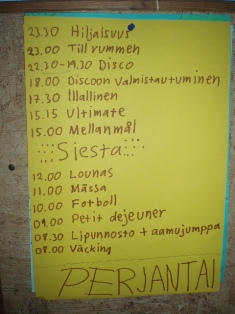 23.30 Hiljaisuus
23.00 Till rummen
22.30-19.30 Disco
18.00 Discoon valmistautuminen
17.30 Illallinen
15.15 Ultimate
15.00 Mellanmål
Siesta
12.00 Lounas
11.00 Mässa
10.00 Fotboll
09.00 Petit dejeuner
08.30 Lipunnosto + aamujumppa
08.00 Väcking
PERJANTAI